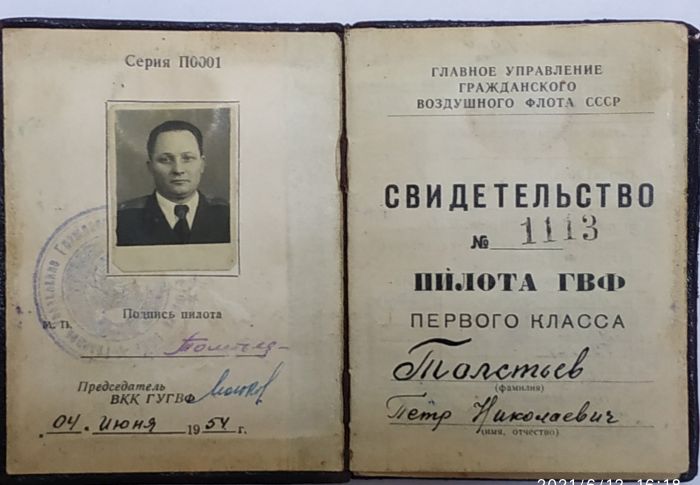 Серия П0001
М. П.
Подпись пилота
Председатель
ВКК ГУГВФ
04. Июня 1954 г.
ГЛАВНОЕ УПРАВЛЕНИЕ
ГРАЖДАНСКОГО
ВОЗДУШНОГО ФЛОТА СССР
СВИДЕТЕЛЬСТВО
№ 1113
ПИЛОТА ГВФ
ПЕРВОГО КЛАССА
Толстьев
(фамилия)
Петр Николаевич
(имя, отчество)
2021/6/12 16:18